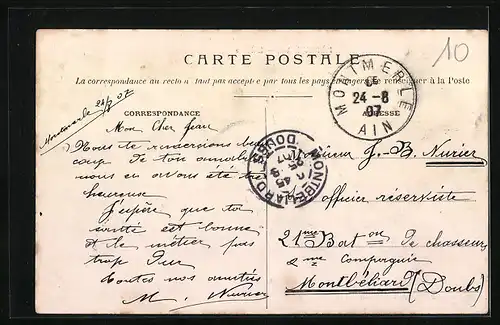 10
CARTE POSTALE
La correspondance au recto n'étant pas acceptée par tous les pays étrangers se renseigner à la Poste
MONTMERLE
24-8
07
AIN
CORRESPONDANCE
ADRESSE
Montmerle 24/8 07
Mon Cher Jean
Nous te remercions beau
coup de ton amabilité
nous en avons été très
heureuse
J'espère que ta
santé est bonne
et le métier pas
trop dur
Toutes nos amitiés
M. Nurier
MONTBELIARD
DOUBS
Monsieur J. B. Nurier
officier réserviste
21me Bat on de chasseurs
2me Compagnie
Montbéliard (Doubs)